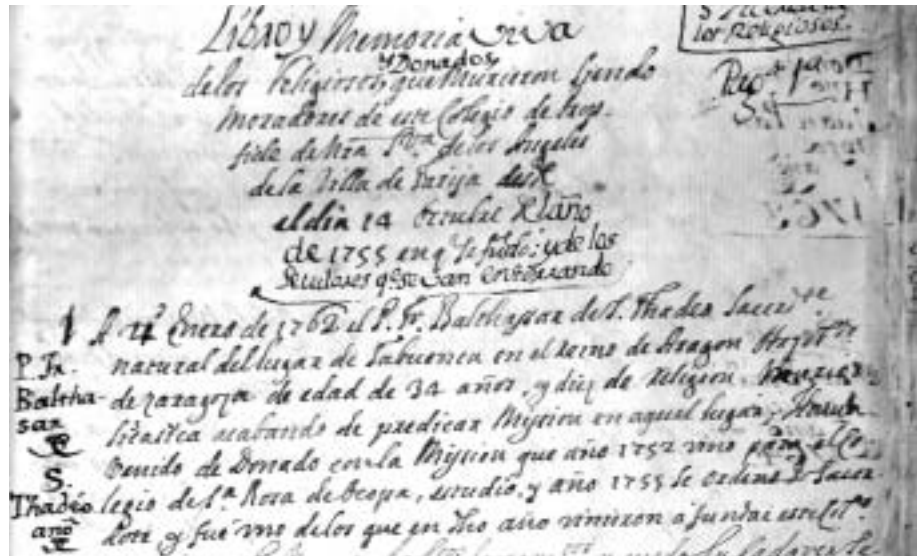 Libro y Memoria viva
de los Religiosos, y Donados, que Murieron siendo
moradores de este Colegio de
de Nra Sra de los Angeles
de la Villa de Tarija desde
el dia 14 Octubre del año
de 1755 en q. se fundo: y de los
Seculares q. se van enterrando
los Religiosos.
1 A 4 Enero de 1762 el P. Fr. Balthassar de S. Thadeo Sacerte
natural del lugar de Tabuenca en el Reino de Aragon
de Zaragoza de edad de 34 años, y diez de Religion,
acabando de predicar Mission en aquel lugar;
venido de Donado con la Mission que año 1752 vino para el Co
legio de Sta Rosa de Ocopa, estudio, y año 1755 se ordenò de Sacer
dote y fue uno de los que en dho año vinieron a fundar este Colo.
P. Fr.
Baltha-
sar
de
S.
Thadeo